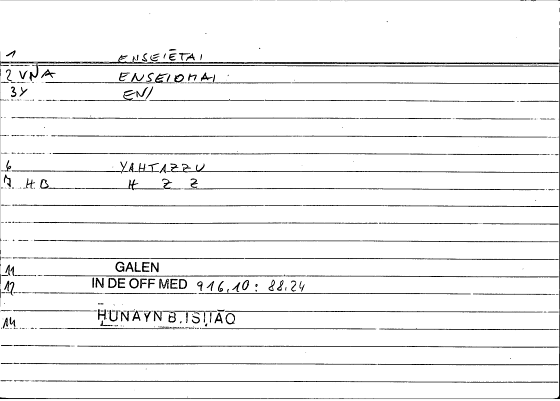 1 ENSEIĒTAI
2 VNA ENSEIOMAI
3Y EN/
6 YAHTAZZU
7 HB H Z Z
11 GALEN
12 IN DE OFF MED 916,10 : 88.24
14 ḤUNAYN B. ISḤĀQ